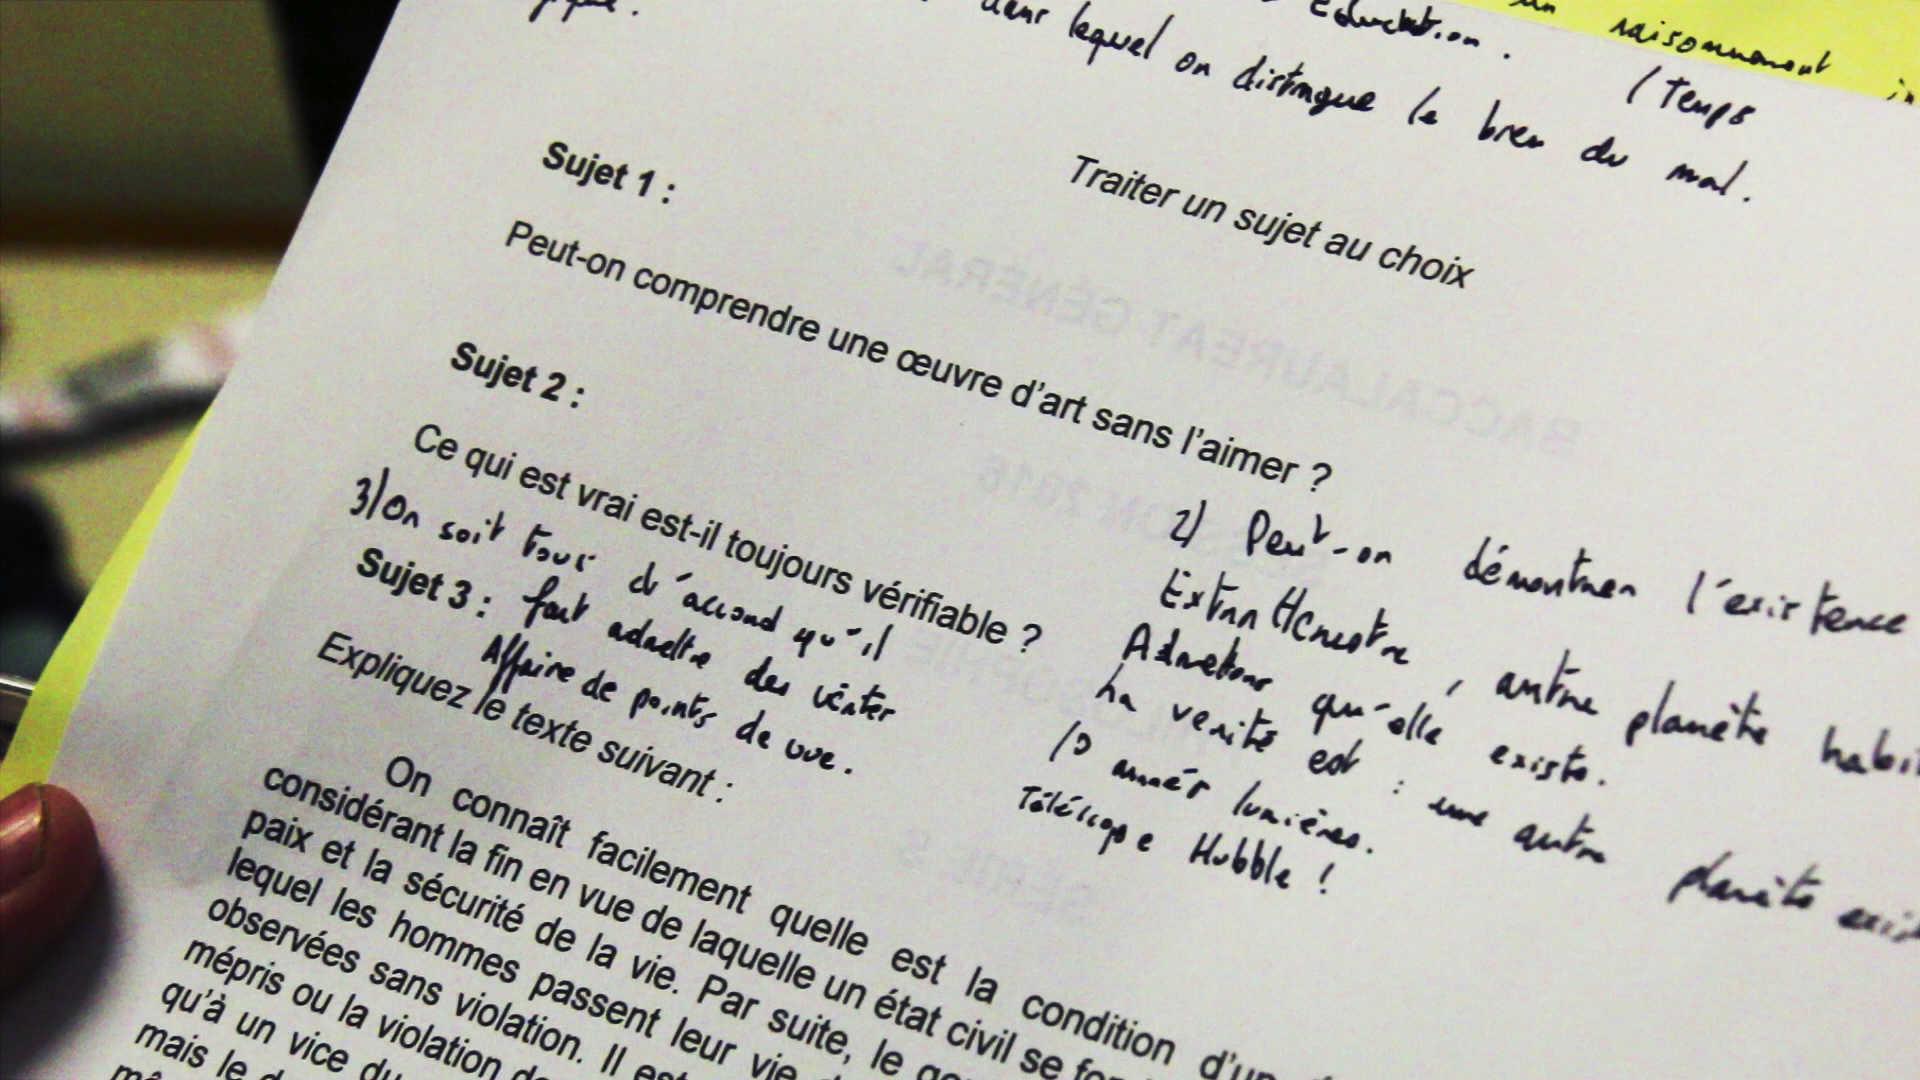 Education. un raisonnement
dans lequel on distingue le bien du mal. (Temps
Traiter un sujet au choix
Sujet 1 :
Peut-on comprendre une œuvre d'art sans l'aimer ?
Sujet 2 :
Ce qui est vrai est-il toujours vérifiable ?
3) On soit tous d'accord qu'il
faut admettre des vériter
Affaire de points de vue.
2) Peut-on démontrer l'existence
Extra terrestre, autre planète
Admetons qu'elle existe.
La verité est : une autre planète
10 années lumières.
Téléscope Hubble !
Sujet 3 :
Expliquez le texte suivant :
On connaît facilement quelle est la condition
considérant la fin en vue de laquelle un état civil se
paix et la sécurité de la vie. Par suite, le
lequel les hommes passent leur vie
observées sans violation. Il est
mépris ou la violation
qu'à un vice du
mais le
BACCALAURÉAT GÉNÉRAL
SESSION 2016
PHILOSOPHIE
SÉRIE S